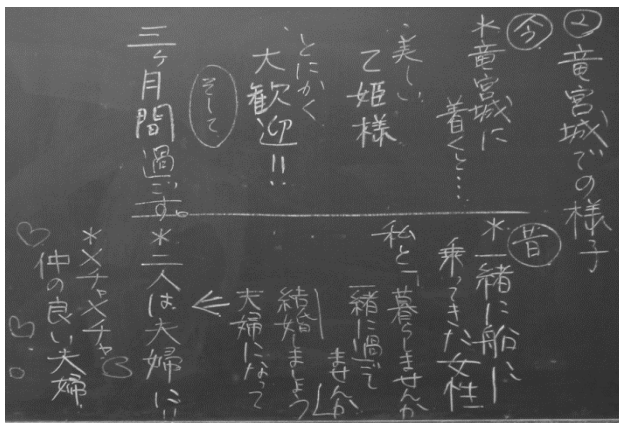 ② 竜宮城での様子
今
＊竜宮城に
着くと…
・美しい
乙姫様
・とにかく
大歓迎!!
そして
三ヶ月間過ごす。
昔
＊一緒に船に
乗ってきた女性
私と「暮らしませんか
一緒に過ごして
ませんか
結婚しましょう
夫婦になって
＊二人は夫婦に!!
＊メチャメチャ
仲の良い夫婦